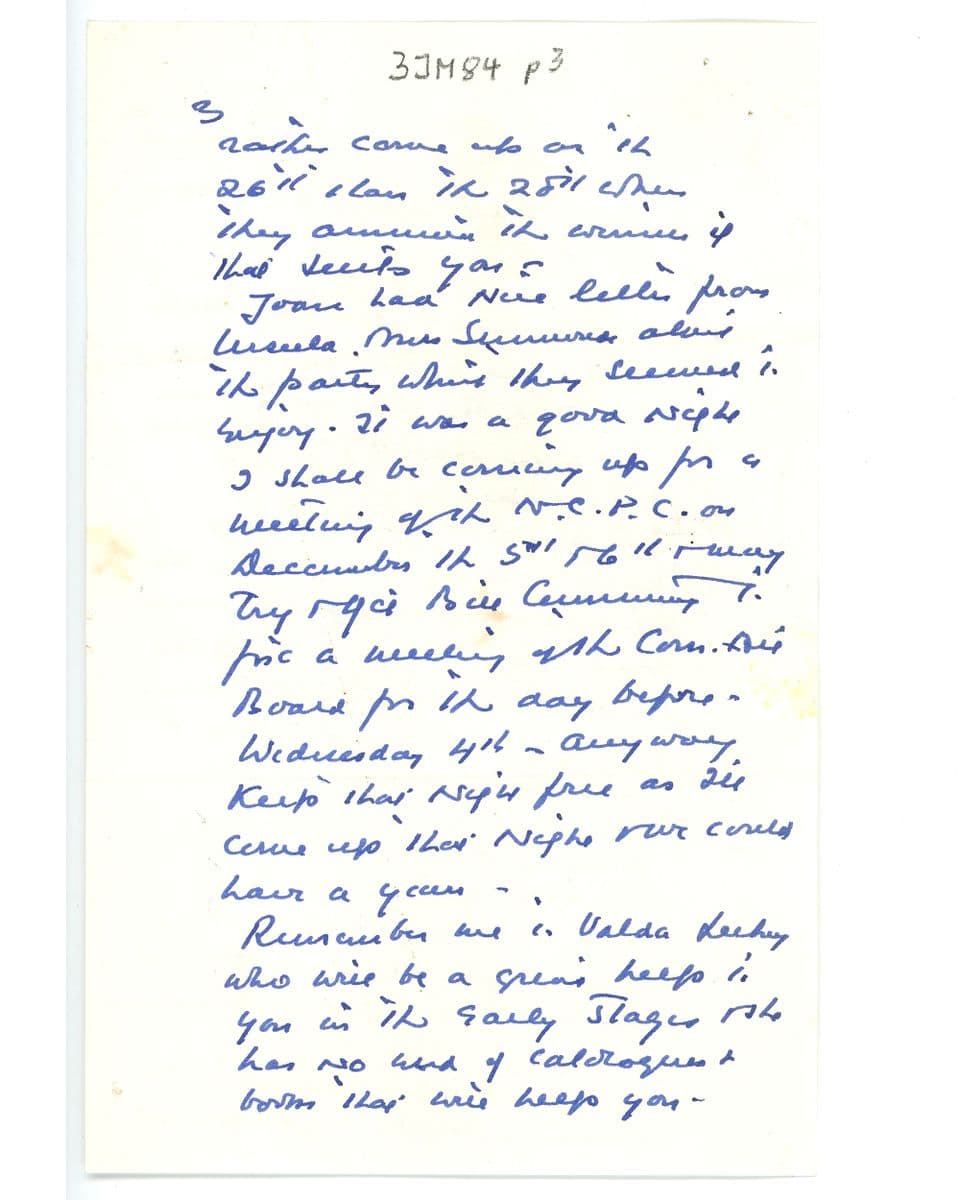 3JM84 p3
3
rather come up on the
26th than the 28th when
they announce the winner if
that suits you -
Joan had Nice letter from
Ursula. Mrs about
the party which they seemed to
Enjoy. It was a good Night
I shall be coming up for a
meeting of the N.C.P.C. on
December the 5th + 6th + may
Try + get Bill Cumming to
fix a meeting of the Com.
Board for the day before -
Wednesday 4th - Anyway
Keep that Night free as I'll
Come up that Night + we could
have a yarn -
Remember me to Valda Leehey
who will be a great help to
you in the Early Stages + she
has no end of Catalogues +
books that will help you -